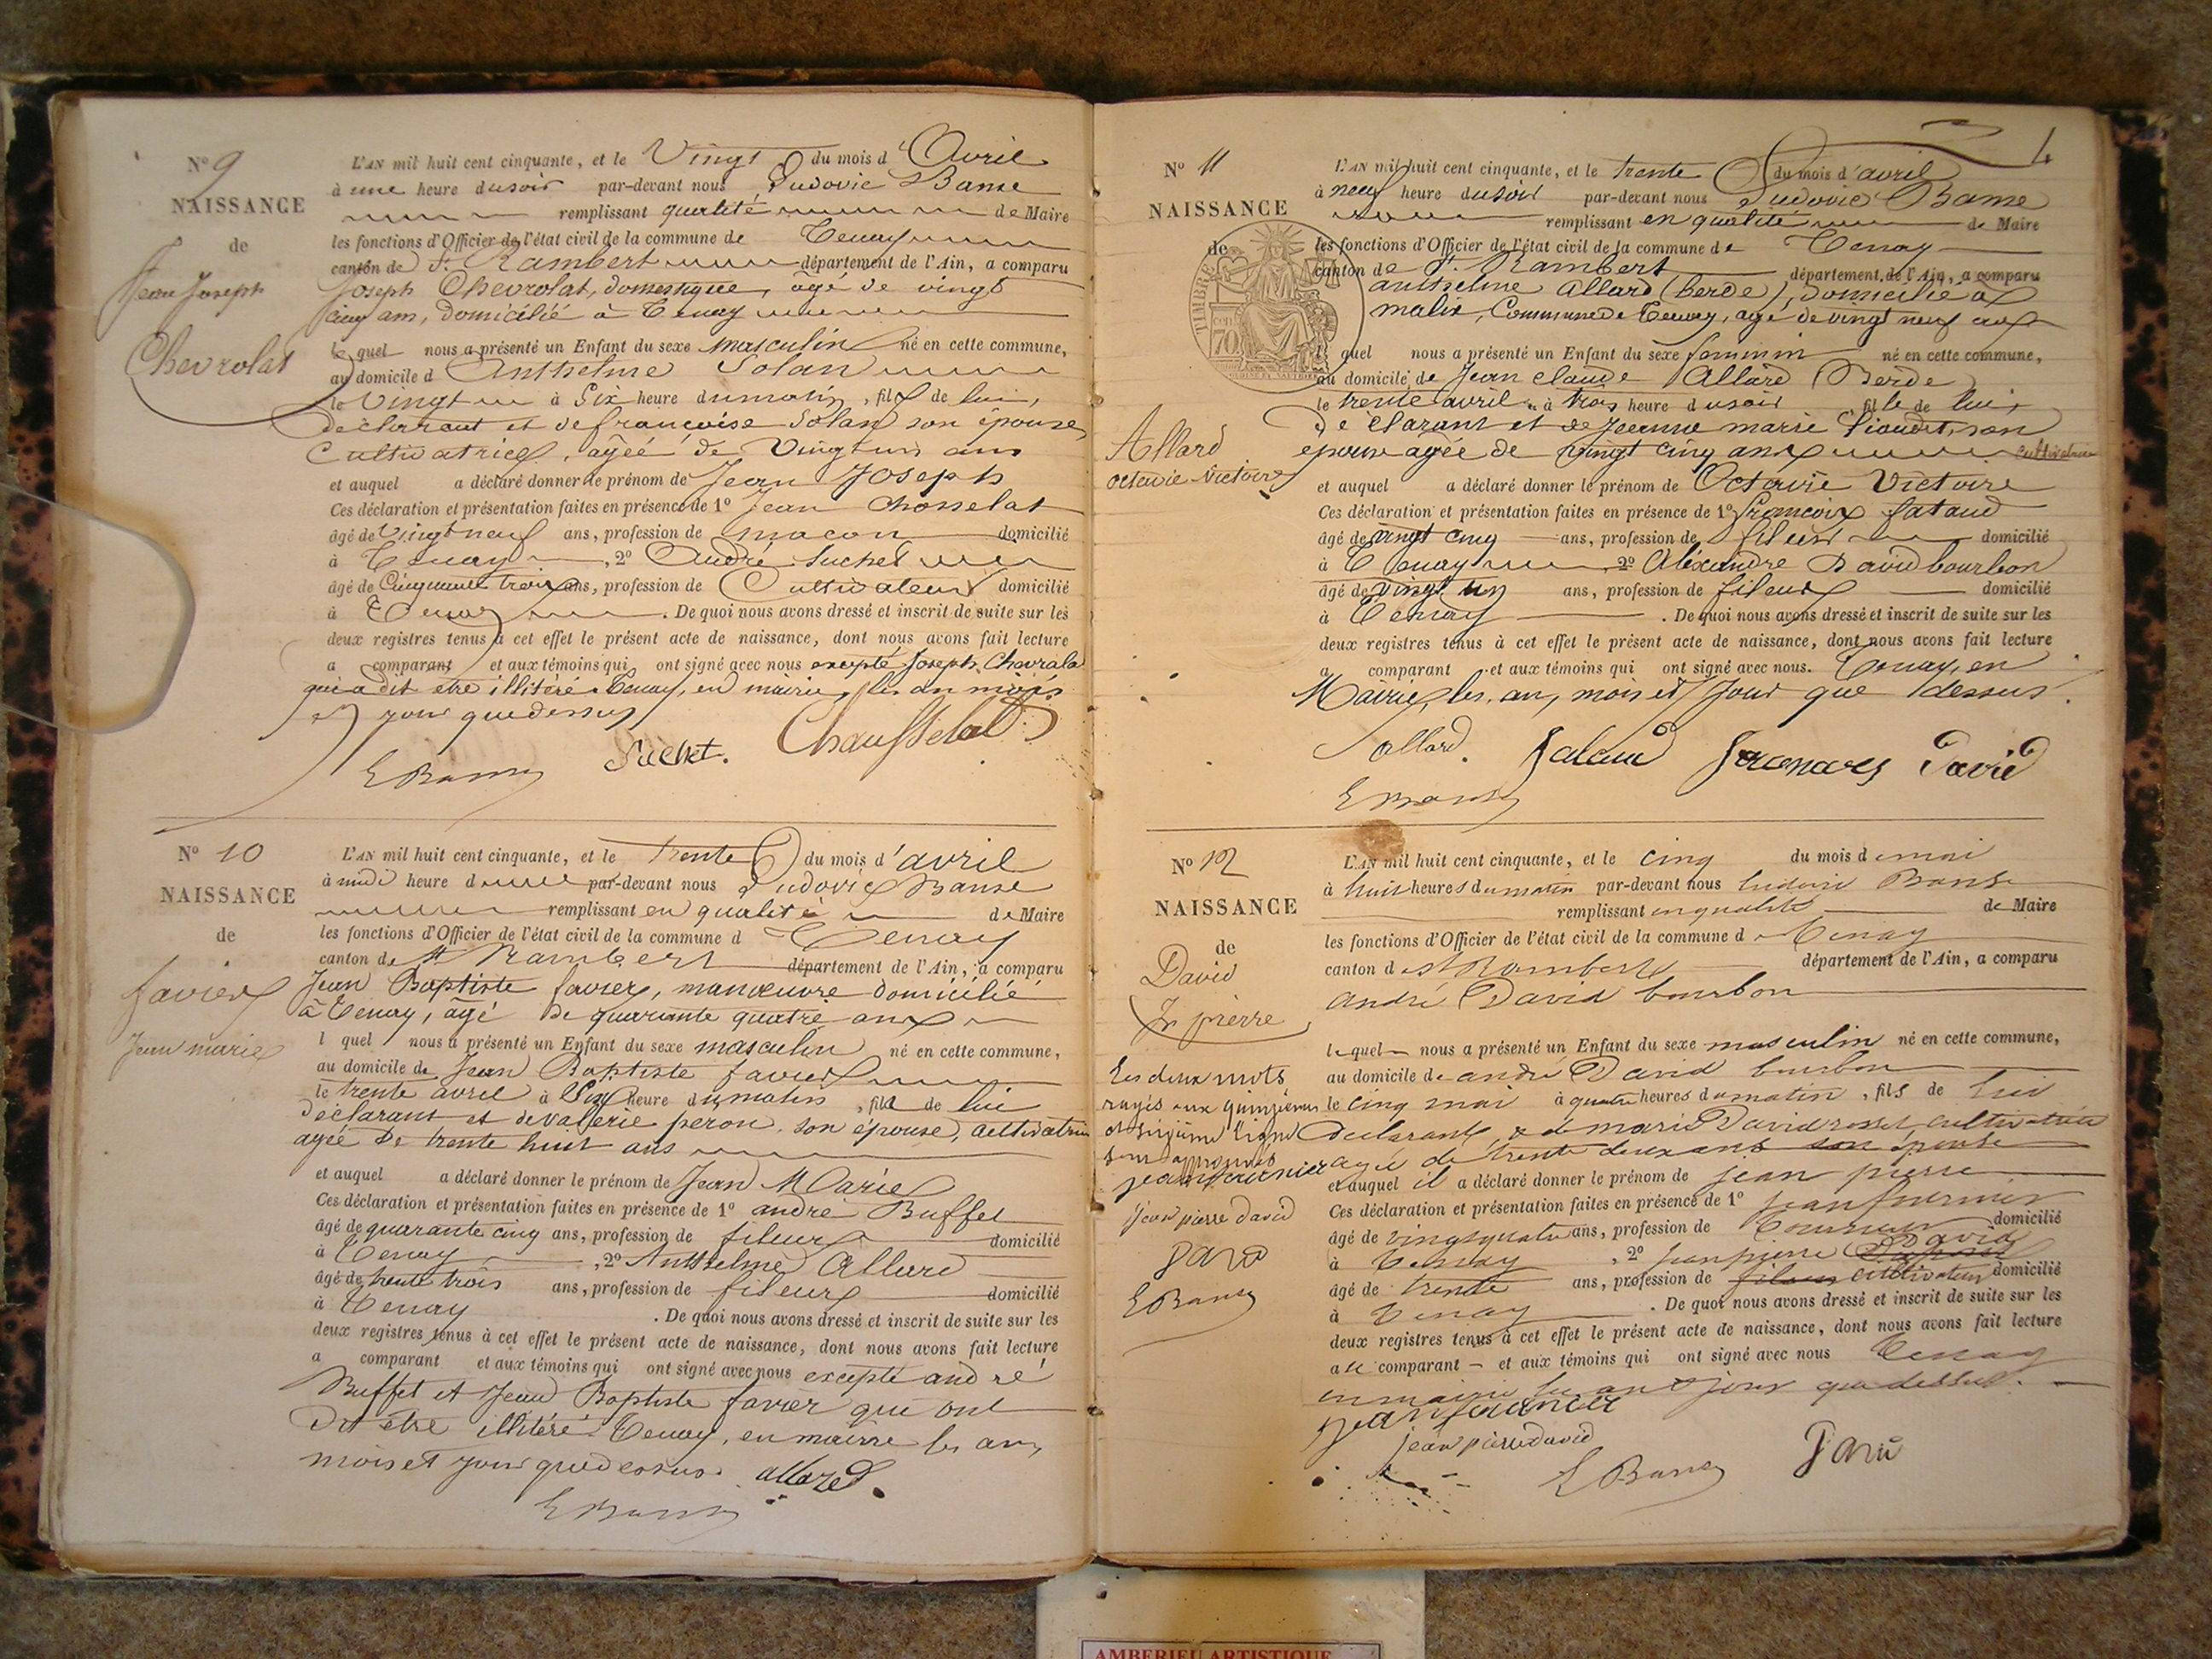 N° 9
NAISSANCE
de
Jean Joseph
Chevrolat
L'AN mil huit cent cinquante, et le Vingt du mois d'Avril
à une heure du soir par-devant nous Ludovic Banse
remplissant qualité de Maire
les fonctions d'Officier de l'état civil de la commune de Tenay
canton de St Rambert département de l'Ain, a comparu
Joseph Chevrolat, domestique, agé de vingt
cinq ans, domicilié à Tenay
le quel nous a présenté un Enfant du sexe masculin né en cette commune,
au domicile d Anthelme Solan
le Vingt à Six heure du matin, fils de lui,
déclarant et de françoise Solan son épouse,
Cultivatrice, agée de Vingt un ans
et auquel a déclaré donner le prénom de Jean Joseph
Ces déclaration et présentation faites en présence de 1° Jean Chosselat
âgé de Vingt neuf ans, profession de macon domicilié
à Tenay, 2° André Suchet
âgé de Cinquante trois ans, profession de Cultivateur domicilié
à Tenay. De quoi nous avons dressé et inscrit de suite sur les
deux registres tenus à cet effet le présent acte de naissance, dont nous avons fait lecture
a comparant et aux témoins qui ont signé avec nous excepté Joseph Chevrola
qui a dit etre illitéré Tenay, en mairie, les an mois
et jour que dessus
Suchet. Chausselat
N° 10
NAISSANCE
de
favier
Jean marie
L'AN mil huit cent cinquante, et le trente du mois d'avril
à midi heure d par-devant nous Ludovic Banse
remplissant en qualité de Maire
les fonctions d'Officier de l'état civil de la commune d Tenay
canton de St Rambert département de l'Ain, a comparu
Jean Baptiste favier, manœuvre domicilié
à Tenay, agé de quarante quatre ans
l quel nous a présenté un Enfant du sexe masculin né en cette commune,
au domicile de Jean Baptiste favier
le trente avril à Six heure du matin, fils de lui
déclarant et de valerie peron, son épouse, cultivatrice
agée de trente huit ans
et auquel a déclaré donner le prénom de Jean Marie
Ces déclaration et présentation faites en présence de 1° andré Buffet
âgé de quarante cinq ans, profession de fileur domicilié
à Tenay, 2° Anthelme Allard
âgé de trente trois ans, profession de fileur domicilié
à Tenay. De quoi nous avons dressé et inscrit de suite sur les
deux registres tenus à cet effet le présent acte de naissance, dont nous avons fait lecture
a comparant et aux témoins qui ont signé avec nous excepté andré
Buffet et Jean Baptiste favier qui ont
dit être illitéré Tenay, en mairie les an,
mois et jour que dessus. allard
N° 11
NAISSANCE
de
TIMBRE
70
Allard
octavie victoire
L'AN mil huit cent cinquante, et le trente du mois d'avril
à neuf heure du soir par-devant nous Ludovic Banse
remplissant en qualité de Maire
les fonctions d'Officier de l'état civil de la commune de Tenay
canton de St Rambert département de l'Ain, a comparu
anthelme allard (berde), domicilié à
malix, Commune de Tenay, agé de vingt neuf ans
l quel nous a présenté un Enfant du sexe feminin né en cette commune,
au domicile de Jean claude Allard Berde
le trente avril à trois heure du soir fille de lui,
déclarant et de Jeanne marie son
epouse agée de vingt cinq ans cultivatrice
et auquel a déclaré donner le prénom de Octavie Victoire
Ces déclaration et présentation faites en présence de 1° françois fataud
âgé de vingt cinq ans, profession de fileur domicilié
à Tenay 2° Aléxandre David bourbon
âgé de vingt un ans, profession de fileur domicilié
à Tenay. De quoi nous avons dressé et inscrit de suite sur les
deux registres tenus à cet effet le présent acte de naissance, dont nous avons fait lecture
a comparant et aux témoins qui ont signé avec nous. Tenay, en
Mairie, les an, mois et Jour que dessus.
allard. David
N° 12
NAISSANCE
de
David
Jn pierre
Les deux mots
rayés aux quinzième
et seizième ligne
sont approuvés
jean pierre david
L'AN mil huit cent cinquante, et le cinq du mois de mai
à huit heures du matin par-devant nous ludovic Banse
remplissant en qualité de Maire
les fonctions d'Officier de l'état civil de la commune de Tenay
canton de St Rambert département de l'Ain, a comparu
andré David bourbon
le quel nous a présenté un Enfant du sexe masculin né en cette commune,
au domicile de andré David bourbon
le cinq mai à quatre heures du matin, fils de lui
declarant, & de marie David rosset, cultivatrice
agée de trente deux ans son épouse
et auquel il a déclaré donner le prénom de jean pierre
Ces déclaration et présentation faites en présence de 1° jean
âgé de vingt quatre ans, profession de domicilié
à Tenay, 2° jean pierre David
âgé de trente ans, profession de fileur cultivateur domicilié
à Tenay. De quoi nous avons dressé et inscrit de suite sur les
deux registres tenus à cet effet le présent acte de naissance, dont nous avons fait lecture
au comparant et aux témoins qui ont signé avec nous Tenay
en mairie les an & jour que dessus.
jean pierre david
AMBERIEU ARTISTIQUE